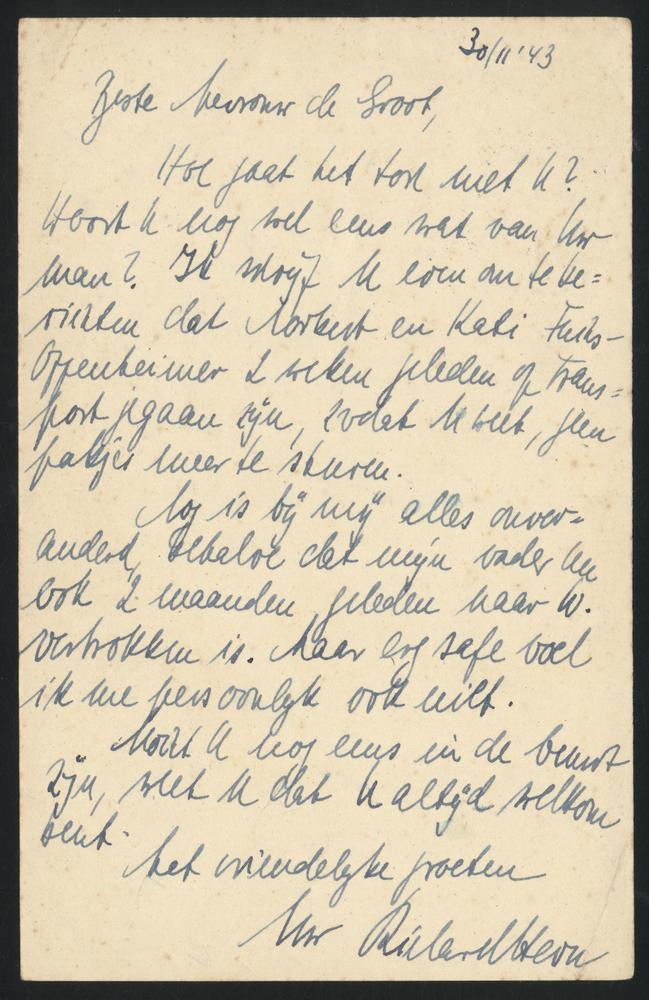 30/11 '43
Beste Mevrouw de Groot,
Hoe gaat het toch met U?
Hoort U nog wel eens wat van Uw
man? Ik schrijf U even om te be=
richten dat Norbert en Kati Fuchs-
Oppenheimer 2 weken geleden op Trans=
port gegaan zijn, zodat U weet, geen
pakjes meer te sturen.
Nog is bij mij alles onver=
anderd, behalve dat mijn vader nu
ook 2 maanden geleden naar W.
vertrokken is. Maar erg safe voel
ik me persoonlijk ook niet.
Mocht U nog eens in de buurt
zijn, weet U dat U altijd welkom
bent.
Met vriendelijke groeten
Uw Richard